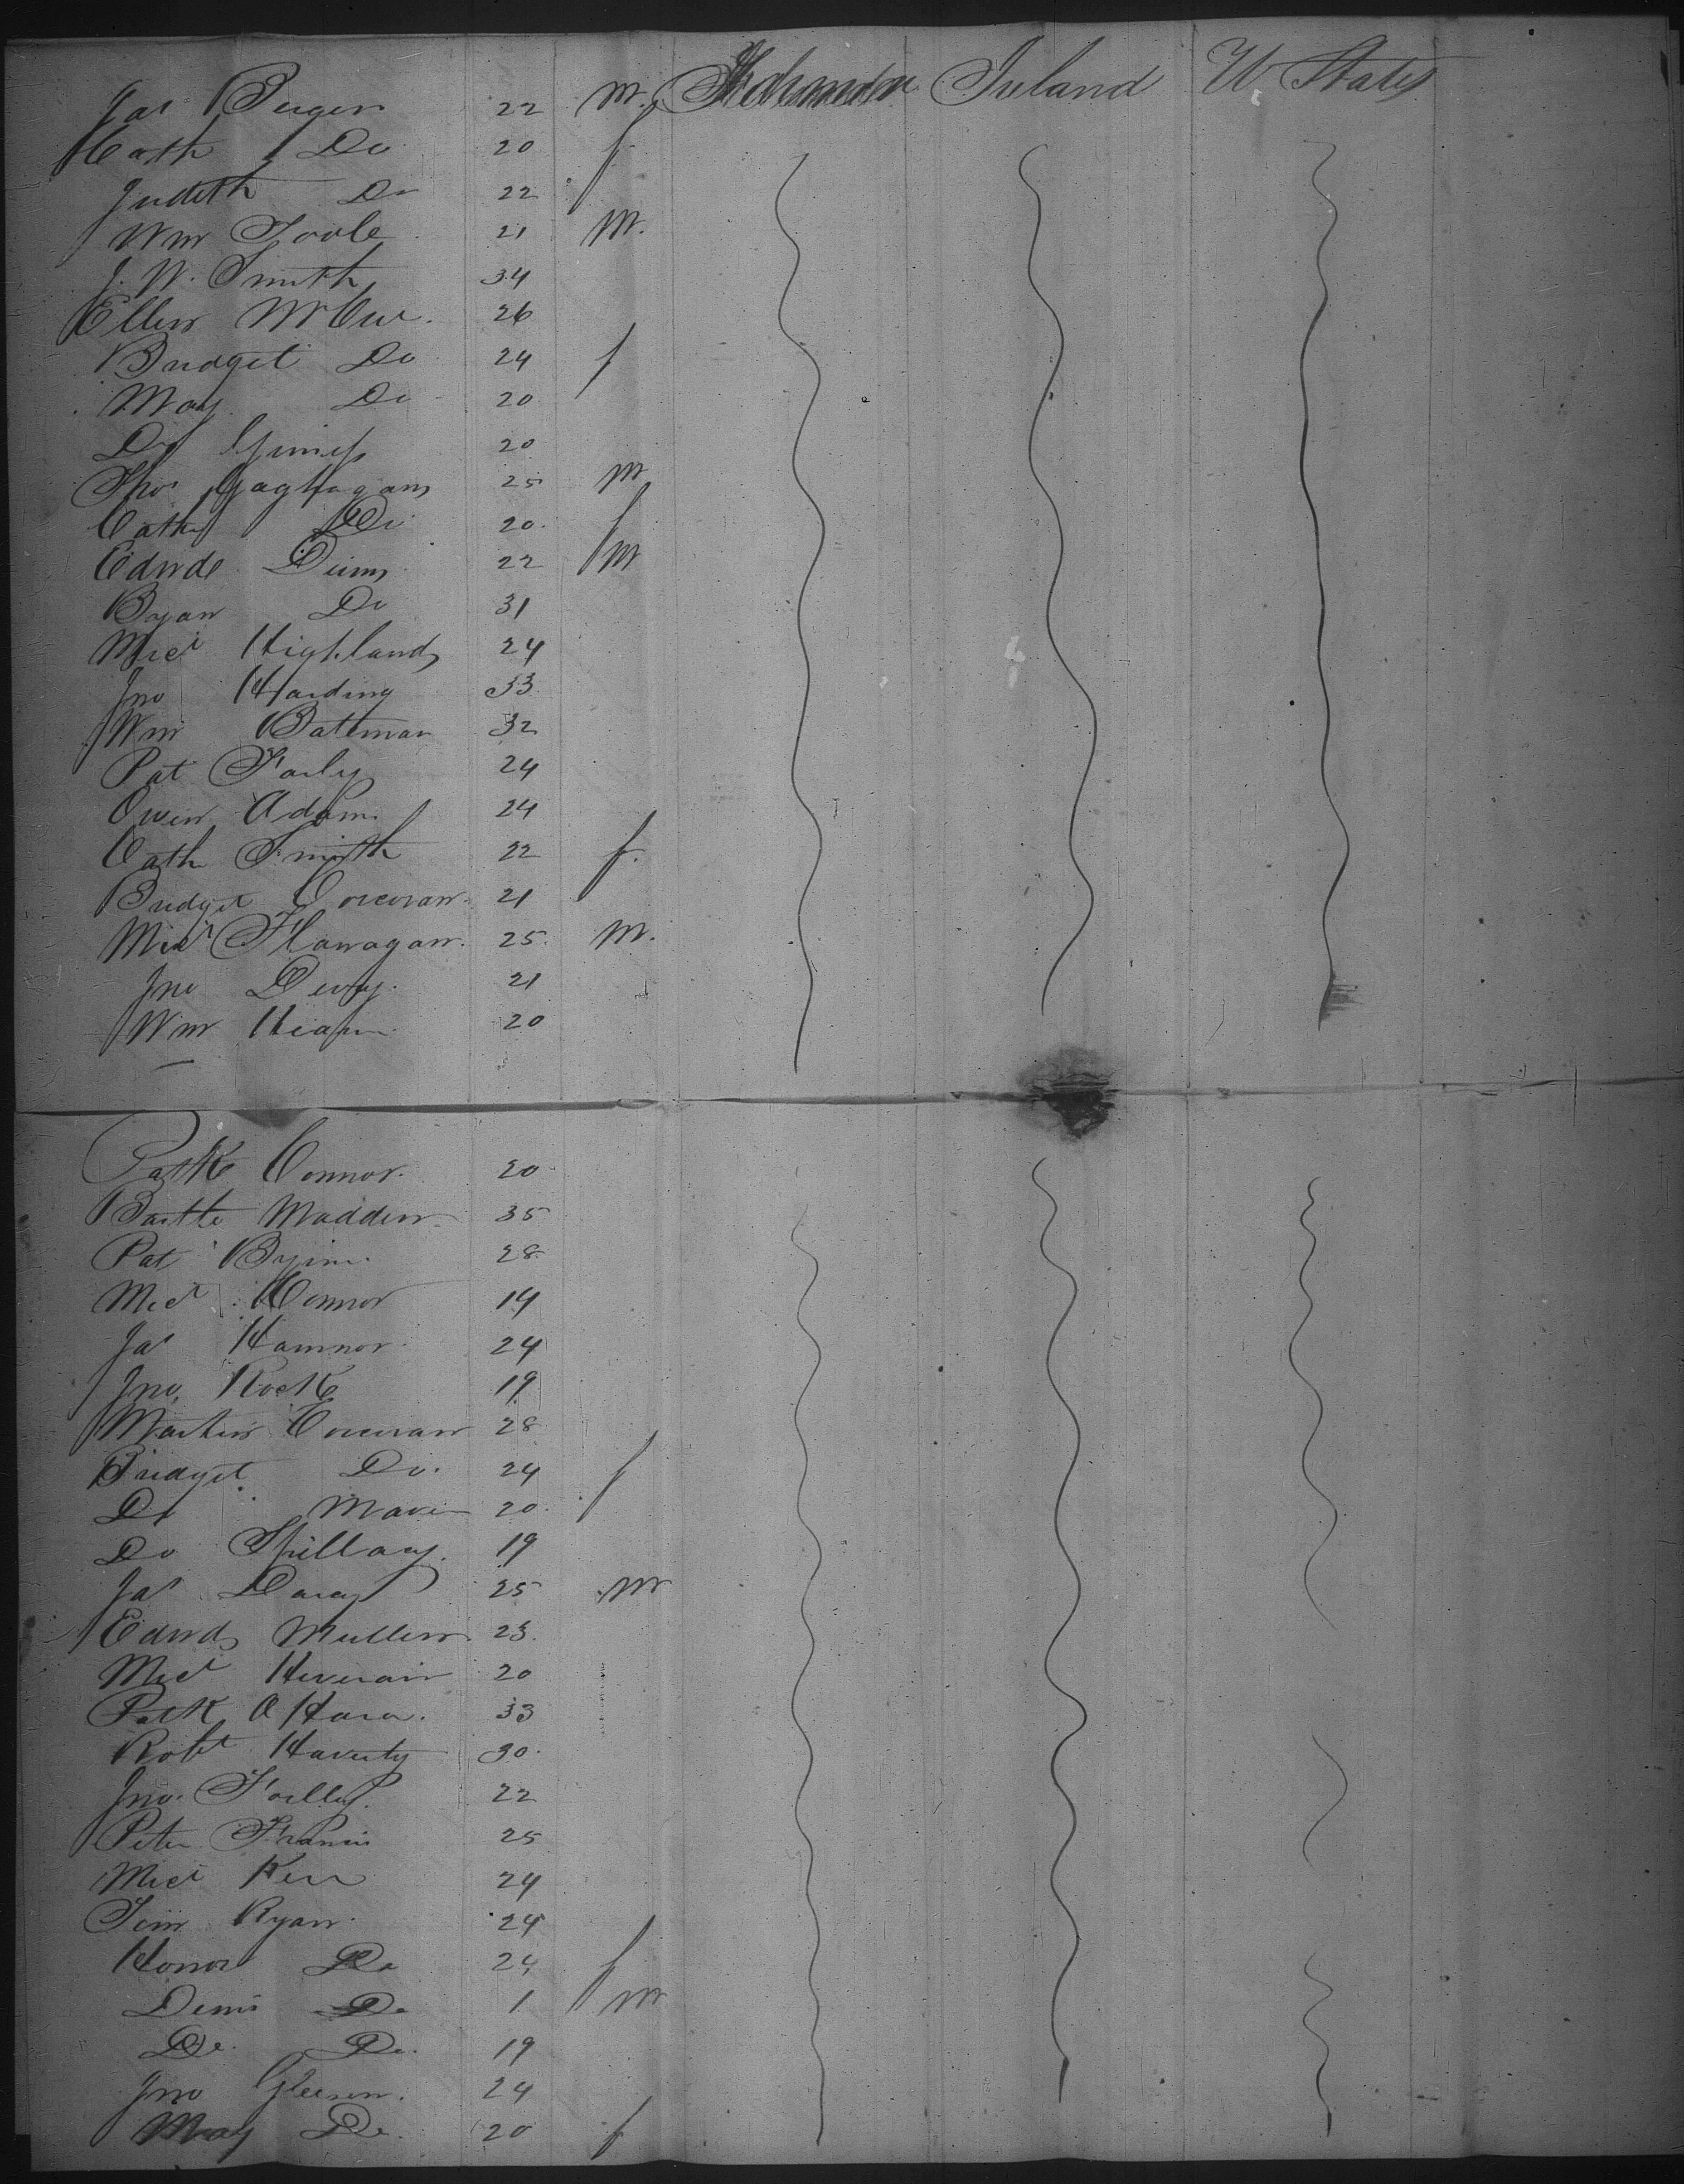 Jas Bergen 22 m. Ireland U States
Cath Do 20 f
Judith Do 22
Wm Toole 21 m.
J. W. Smith 34
Ellen McCue 26
Bridget Do 24 f
May Do 20
Do 20
Thos Gaghagan 25 m
Cath Do 20 f
Edwd Dunn 22 m
Bryan Do 31
Micl Highland 24
Jno Harding 33
Wm Bateman 32
Pat Farly 24
Owen Adam 24
Cath Smith 22 f.
Bridget Corcoran 21
Micl Flanagan 25 m.
Jno Devoy 21
Wm 20
Patk Connor 20
Bartle Madden 35
Pat 28
Micl Connor 14
Jas Hannor 24
Jno Rock 19
Martin Corcoran 28
Bridget Do. 24 f
Do 20
Do Spillacy 19
Jas Daray 25 m
Edwd Mullen 23
Micl 20
Patk O Hara 33
Robt Haverty 30
Jno. 22
Peter Francis 25
Micl Kerr 24
Tim Ryan 24
Honor Do 24 f
Denis Do 1 m
Do Do 19
Jno Gleeson 24
May Do 20 f